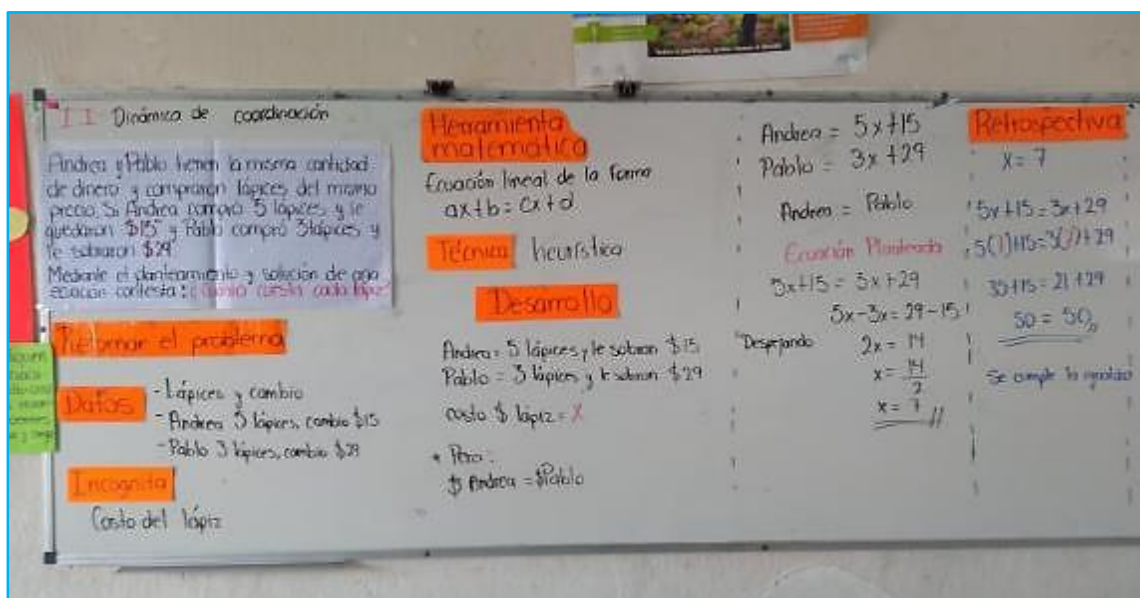 II Dinámica de coordinación
Andrea y Pablo tienen la misma cantidad
de dinero y compraron lápices del mismo
precio. Si Andrea compró 5 lápices y le
quedaron $15 y Pablo compró 3 lápices y
le sobraron $29
Mediante el planteamiento y solución de una
ecuación contesta: ¿Cuánto cuesta cada lápiz?
Retomar el problema
Datos
- Lápices y cambio
- Andrea 5 lápices, cambio $15
- Pablo 3 lápices, cambio $29
Incógnita
Costo del lápiz
Herramienta
matemática
Ecuación lineal de la forma
ax+b=cx+d
Técnica heurística
Desarrollo
Andrea = 5 lápices y le sobran $15
Pablo = 3 lápices y le sobran $29
costo $ lápiz = x
* Pero:
$ Andrea = $Pablo
Andrea = 5x+15
Pablo = 3x+29
Andrea = Pablo
Ecuación Planteada
5x+15 = 3x+29
5x-3x=29-15
Despejando 2x = 14
x = 14/2
x = 7
Retrospectiva
x = 7
5x+15=3x+29
5(7)+15=3(7)+29
35+15=21+29
50 = 50
Se cumple la igualdad